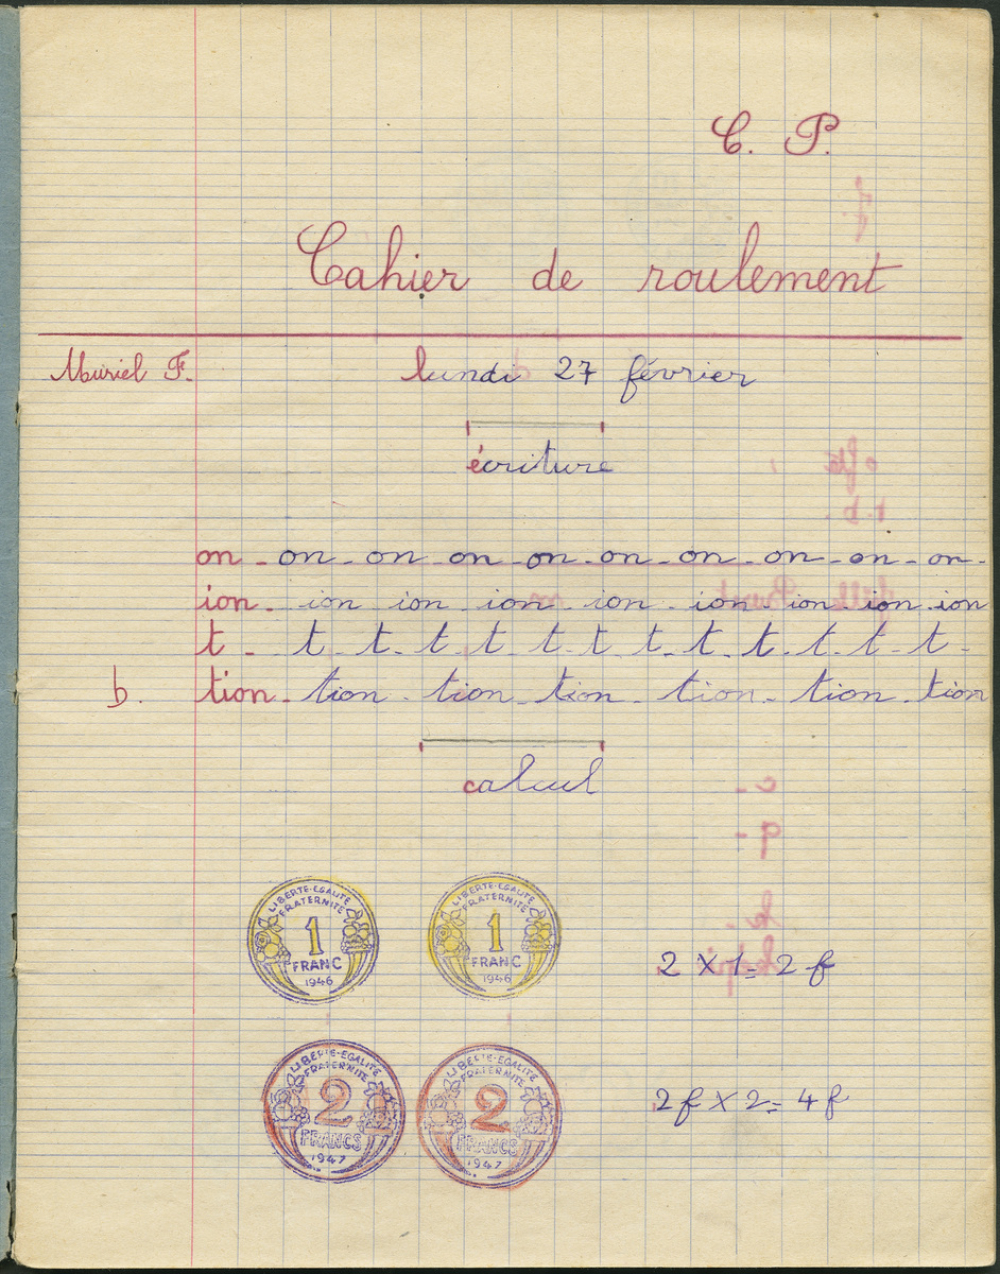 C. P.
Cahier de roulement
Muriel F. lundi 27 février
écriture
on - on - on - on - on - on - on - on - on - on -
ion - ion ion ion ion ion ion ion ion
t - t t t t t t t t t t t -
b. tion - tion - tion tion tion - tion - tion
calcul
LIBERTE-EGALITE
FRATERNITE
1
FRANC
1946
LIBERTE-EGALITE
FRATERNITE
1
FRANC
1946
2 X 1 = 2 f
LIBERTE-EGALITE
FRATERNITE
2
FRANCS
1947
LIBERTE-EGALITE
FRATERNITE
2
FRANCS
1947
2 f X 2 = 4 f